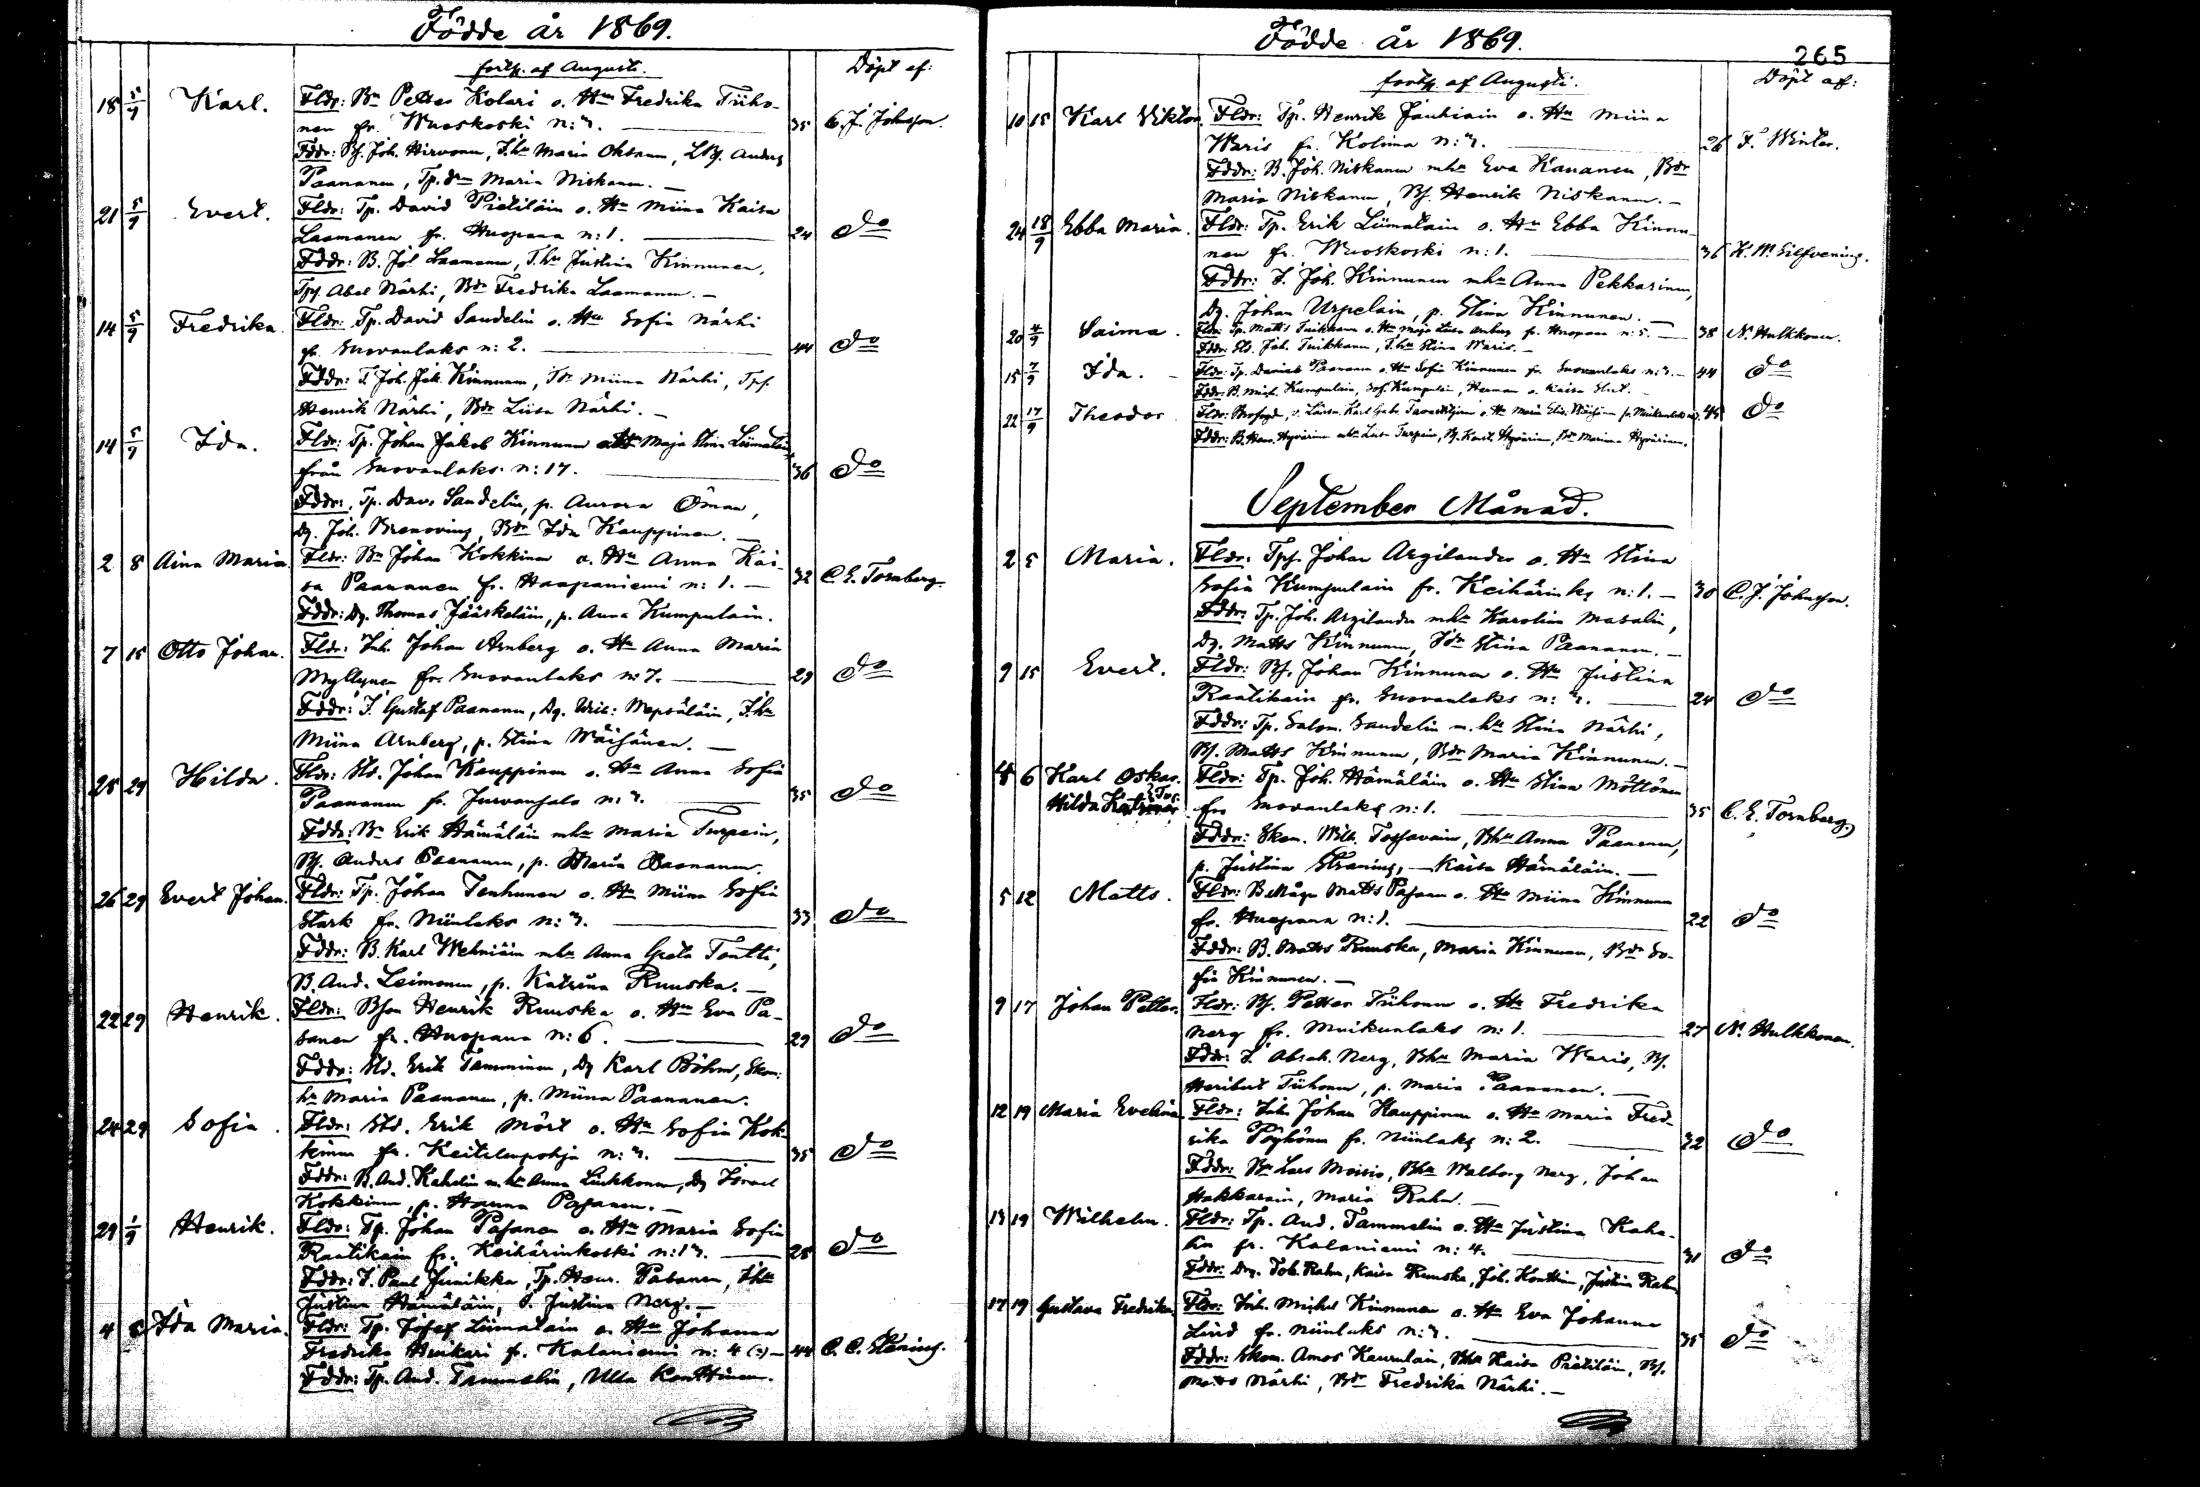 Födde år 1869.
forts. af Augusti.
Döpt af:
18 5/9 Karl. Fldr: Bn Petter Kolari o. Hu Fredrika Tiiho-
nen fr. Wuoskoski n: 35 C. J. Johnsson.
Fddr: Bs. Joh. Hirvonen, T.hu Maria Oksanen, Anders
Paananen, Tp. dr Maria Niskanen. —
21 5/9 Evert. Fldr: Tp. David Pietiläin o. Hu Miina Kaisa
Laamanen fr. Huopana n: 1. 24 do
Fddr: B. Joh. Laamanen, T.hu Justina Kinnunen,
Tps. Abel Närhi, Bdr Fredrika Laamanen. —
14 5/9 Fredrika. Fldr: Tp. David Sandelin o. Hu Sofia Närhi
fr. Suovanlaks n: 2. 44 do
Fddr: I. Joh. Jak. Kinnunen, Miina Närhi, Tps.
Henrik Närhi, Bdr Liisa Närhi. —
14 5/9 Ida. Fldr: Tp. Johan Jakob Kinnunen o. Hu Maja Stina Liimatain
från Suovanlaks n: 17. 36 do
Fddr: Tp. Dav. Sandelin, p. Aurora Öman,
Dg. Joh. Brenoving, Bdr Ida Kauppinen. —
2 8 Aina Maria. Fldr: Bn Johan Kokkinen o. Hu Anna Kai-
sa Paananen fr. Haapaniemi n: 1. — 32 C. E. Tornberg.
Fddr: Dg. Thomas Jääskeläin, p. Anna Kumpulain.
7 15 Otto Johan. Fldr: Inh. Johan Arnberg o. Hu Anna Maria
Myllynen fr. Suovanlaks n: 7. 29 do
Fddr: I. Gustaf Paananen, Dg. Wepsäläin, I.hu
Miina Arnberg, p. Stina Wäisänen. —
25 29 Hilda. Fldr: Std. Johan Kauppinen o. Hu Anna Sofia
Paananen fr. Jurvansalo n: 35 do
Fddr: Bn Erik Hämäläin mhu Maria Turpein,
Bs. Anders Paananen, p. Maria Paananen.
26 29 Evert Johan. Fldr: Tp. Johan Tenhunen o. Hu Miina Sofia
Stark fr. Niinlaks n: 33 do
Fddr: B. Karl Wehniäin mhu Anna Greta Tontti,
B. And. Leimonen, p. Katrina Ruuska. —
22 29 Henrik. Fldr: Bson Henrik Ruuska o. Hu Eva Pa-
sanen fr. Huopana n: 6. 29 do
Fddr: Std. Erik Tamminen, Dg Karl Böhm, Skom:
hu Maria Paananen, p. Miina Paananen.
24 29 Sofia. Fldr: Std. Erik Mört o. Hu Sofia Kok-
kinen fr. Keitelenpohja n: 35 do
Fddr: B. And. Kahelin m.hu Anna Liukkonen, Dg Israel
Kokkinen, p. Hanna Pasanen. —
29 1/9 Henrik. Fldr: Tp. Johan Pasanen o. Hu Maria Sofia
Raatikain fr. Keihärinkoski n: 28 do
Fddr: I. Paul Junikka, Tp. Henr. Pasanen, I.hu
Justina Hämäläin, p. Justina Nerg. —
4 Ada Maria. Fldr: Tp. Josef Liimatain o. Hu Johanna
Fredrika Huikari fr. Kalaniemi n: 4 44 C. C. Stening.
Fddr: Tp. And. Tammelin, Ulla Konttinen.
Födde år 1869.
265
forts. af Augusti.
Döpt af:
10 15 Karl Viktor. Fldr: Tp. Henrik Jauhiain o. Hu Miina
Waris fr. Kolima n: 26 F. Winter.
Fddr: B. Joh. Niskanen mhu Eva Kananen, Bdr
Maria Niskanen, Bs. Henrik Niskanen. —
24 18/9 Ebba Maria. Fldr: Tp. Erik Liimatain o. Hu Ebba Kinnu-
nen fr. Wuoskoski n: 1. 36 K. W. Silfvening.
Fddr: I. Joh. Kinnunen mhu Anna Pekkarinen,
Dg. Johan Urpelain, p. Stina Kinnunen. —
20 4/9 Saima. Fldr: Tp. Matts Tuikkanen o. Hu Maja Liisa Arnberg fr. Huopana n: 5. — 38 N. Hulkkonen.
Fddr: Std. Joh. Tuikkanen, I.hu Stina Waris. —
15 7/9 Ida. Fldr: Tp. Daniel Paananen o. Hu Sofia Kinnunen fr. Suovanlaks n: 44 do
Fddr: B. Mich. Kumpulain, Sof. Kumpulain, Herman o. Kaisa
22 17/9 Theodor. Fldr: Karl Gabr. o. Hu Maria Elis. fr. Muikunlaks 45 do
Fddr: B. Hyvärinen mhu Liisa Turpein, Bs. Karl Hyvärinen, Bdr Marina Hyvärinen.
September Månad.
2 5 Maria. Fldr: Tps. Johan Argilander o. Hu Stina
Sofia Kumpulain fr. Keihärinks n: 1. — 30 C. J. Johnsson.
Fddr: Tp. Joh. Argilander mhu Karolina Masalin,
Dg. Matts Kinnunen, Idr Stina Paananen. —
9 15 Evert. Fldr: Bs. Johan Kinnunen o. Hu Justina
Raatikain fr. Suovanlaks n: 24 do
Fddr: Tp. Salom. Sandelin m. hu Stina Närhi,
Bs. Matts Kinnunen, Bdr Maria Kinnunen. —
4 6 Karl Oskar. Fldr: Tp. Joh. Hämäläin o. Hu Stina Möttönen
Hilda Katrina } Tvs. fr. Suovanlaks n: 1. 35 C. E. Tornberg.
Fddr: Skom. Wilh. Tossavain, Bhu Anna Paananen,
p. Justina Straning, — Kaisa Hämäläin. —
5 12 Matts. Fldr: B.Måg Matts Pasanen o. Hu Miina Kinnunen
fr. Huopana n: 1. 22 do
Fddr: B. Matts Ruuska, Maria Kinnunen, Bdr So-
fia Kinnunen. —
9 17 Johan Petter. Fldr: Bs. Petter Tiihonen o. Hu Fredrika
Nerg fr. Muikunlaks n: 1. 27 N. Hulkkonen.
Fddr: I. Abrah. Nerg, Bhu Maria Waris, Bs.
Heribert Tiihonen, p. Maria Paananen. —
12 19 Maria Evelina. Fldr: Inh. Johan Kauppinen o. Hu Maria Fred-
rika Pöyhönen fr. Niinlaks n: 2. 32 do
Fddr: Bn Lars Moisio, Bhu Walborg Nerg, Johan
Hakkarain, Maria Rahn. —
13 19 Wilhelm. Fldr: Tp. And. Tammelin o. Hu Justina Kahe-
lin fr. Kalaniemi n: 4. 31 do
Fddr: Drg. Joh. Rahn, Kaisa Ruuska, Joh. Konttin, Justina Rahn
17 19 Gustava Fredrika. Fldr: Inh. Michel Kinnunen o. Hu Eva Johanna
Lind fr. Niinlaks n: 35 do
Fddr: Skom. Amos Kaurulain, Bhu Kaisa Pietiläin, Bs.
Matts Närhi, Bdr Fredrika Närhi. —